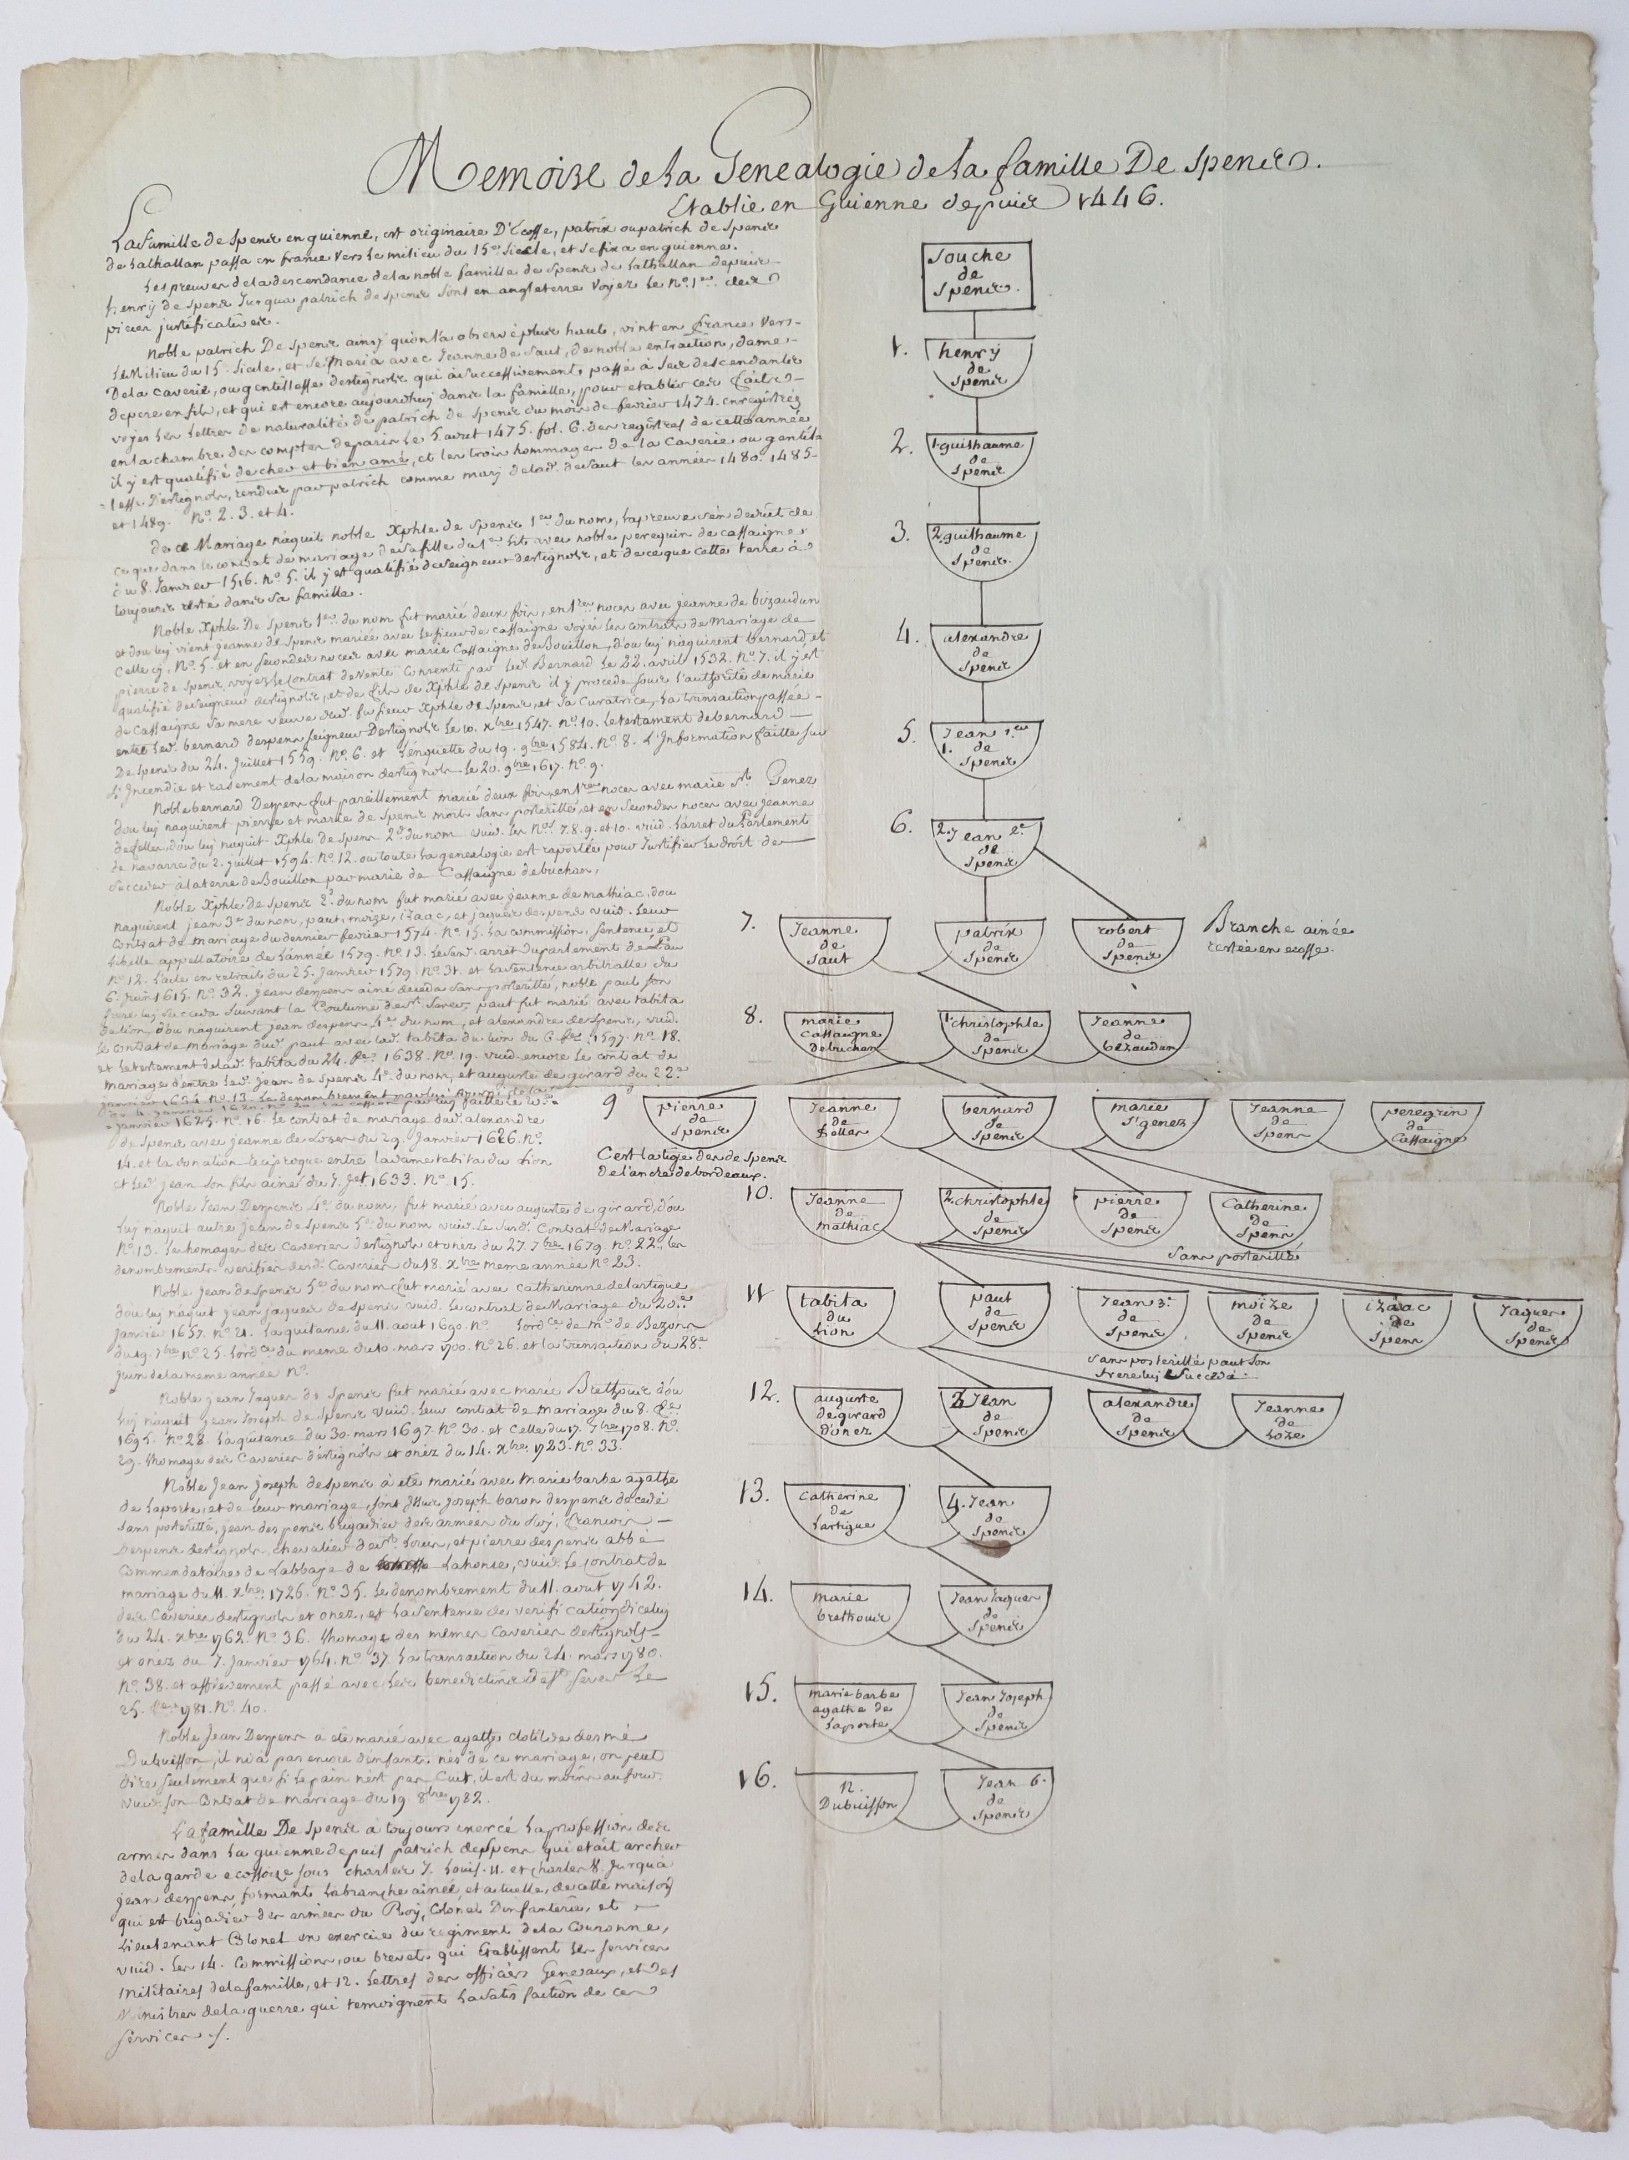 Memoire de la Genealogie de la famille De Spens.
Etablie en Guienne depuis 1446.
La famille de Spens en guienne, est originaire D'Ecosse, patrix ou patrich de Spens
de Lathallan passa en france vers le milieu du 15e Siecle, et se fixa en guienne.
Les preuves de la descendance de la noble famille de Spens de Lathallan depuis
henrÿ de Spens Jusqua patrich de spens sont en angleterre voyez le No. 1er. des
pieces justificatives.
Noble patrich De Spens ainsÿ qu'on l'a observé plus haut, vint en france vers
le Milieu du 15e Siecle, et se maria avec Jeanne de Saut, de noble extraction, dame
De la Caverie, ou gentillesse destignols qui à successivement passé à ses descendants
de pere en fils, et qui est encore aujourdhuy dans la famille, pour etablir ces faits
voyez les lettres de naturalité de patrich de Spens du mois de fevrier 1474. enregistrés
en la chambre des comptes de paris le 5 avril 1475. fol. 6. des registres de cette année
il ÿ est qualifié de cher et bien amé, et les trois hommages de la Caverie ou gentil-
lesse D'estignols, rendus par patrich comme marÿ de lad. de Saut les années 1480. 1485
et 1489. No. 2. 3. et 4.
de ce Mariage naquit noble Xphle de Spens 1er du nom, la preuve s'en deduit de
ce que dans le contrat de mariage de sa fille du 1er lit avec noble peregrin de cassaigne
du 8. Janvier 1516. No. 5. il ÿ est qualifié de seigneur destignols, et de ce que cette terre à
toujours resté dans sa famille.
Noble Xphle De Spens 1er du nom fut marié deux fois, en 1res noces avec jeanne de bizaudun
et d'ou luy vient jeanne de Spens mariée avec le sieur de cassaigne voyez les contrats de Mariage de
celle cy, No. 5. et en secondes noces avec marie Cassaigne de Bouillon, d'ou luy naquirent bernard et
pierre de Spens, voyez le contrat de vente consenti par led. Bernard le 22. avril 1532. No. 7. il ÿ est
qualifié de seigneur destignols, et de fils de Xphle de Spens il ÿ procede sous l'authorité de marie
de Cassaigne sa mere veuve dud. feu sieur Xphle de Spens, et sa Curatrice, la transaction passée
entre led. bernard despens seigneur Destignols le 10. Xbre 1547. No. 10. le testament de bernard
De Spens du 24. Juillet 1559. No. 6. et l'enquette du 19. 9bre 1584. No. 8. L'Information faitte sur
l'Incendie et rasement de la maison destignols le 20. 9bre 1617. No. 9.
Noble bernard Despens fut pareillement marié deux fois, en 1res noces avec marie St. Genez
dou luy naquirent pierre et marie de Spens morts sans posterité, et en secondes noces avec jeanne
de Sellas, dou luy naquit Xphle de Spens 2d. du nom vuid. les Nos 7. 8. 9. et 10. vuid. l'arret du Parlement
de navarre du 2. juillet 1594. No. 12. ou toute la genealogie est raportée pour Justifier le droit de
succeder à la terre de Bouillon par marie de Cassaigne debuchan.
Noble Xphle de Spens 2d. du nom fut marié avec jeanne de mathiac, dou
naquirent jean 3e du nom, paul, moize, izaac, et jaques despens vuid. leur
contrat de mariage du dernier fevrier 1574. No. 15. La commission, sentence et
libelle appellatoire de l'année 1579. No. 13. Led. arret du parlement de Pau
No. 12. L'acte en retrait du 25. Janvier 1579. No. 31. et la sentence arbitralle du
6. Juin 1615. No. 32. jean despens ainé deceda sans posterité, noble paul son
frere luy succeda suivant la Coutume de St. Sever, paul fut marié avec tabita
du lion, d'ou naquirent jean despens 4e du nom, et alexandre de Spens, vuid.
le contrat de mariage dud. paul avec lad. tabita du lion du 6. fer. 1597. No. 18.
et le testament de lad. tabita du 24. 1638. No. 19. vuid. encore le contrat de
mariage d'entre led. jean de Spens 4e. du nom, et auguste de girard du 22e
janvier 1634 No. 13.
janvier 1625. No. 16. Le contrat de mariage dud. alexandre
de Spens avec jeanne de Lozes du 29. Janvier 1626. No.
14. et la donation reciproque entre la dame tabita du Lion
et led. jean son fils ainé du 7. 1633. No. 15.
Noble Jean Despens 4e. du nom, fut marié avec auguste de girard, dou
luy naquit autre Jean de Spens 5e. du nom vuid. le susd. Contrat de Mariage
No. 13. Les homages des Caveries destignols et onez du 27. 7bre 1679. No. 22. les
denombrements verifiés desd. Caveries du 18. Xbre meme année No. 23.
Noble Jean de Spens 5e du nom fut marié avec catherinne de lartigue
dou luy naquit jean jaques de Spens vuid. le contrat de Mariage du 20e.
Janvier 1657. No. 21. La quitance du 11. aout 1690. No. Lordce. de Mr. de Bezons
du 19. 7bre No. 25. Lordce. du meme du 10. mars 1700. No. 26. et la transaction du 28e
Juin de la meme année No.
Noble jean Jaques de Spens fut marié avec marie Brethouis dou
luy naquit jean Joseph de Spens vuid. leur contrat de mariage du 8.
1695. No. 28. La quitance du 30. mars 1697. No. 30. et celle du 17. 7bre 1708. No.
29. l'homage des Caveries d'estignols et onez du 14. Xbre 1723. No. 33.
Noble Jean Joseph de Spens à eté marié avec Marie barbe agathe
de Laporte, et de leur mariage, sont issus Joseph baron despens decedé
sans posterité, jean despens brigadier des armées du Roÿ, francois
Despens destignols, chevalier de St. Louis, et pierre despens abbé
Commendataire de L'abbaye de Lahonse, vuid. le contrat de
mariage du 11. Xbre 1726. No. 35. Le denombrement du 11. aout 1742.
des Caveries destignols et onez, et la sentence de verification diceluy
du 24. Xbre 1762. No. 36. l'homage des mêmes Caveries destignols
et onez du 7. Janvier 1764. No. 37. La transaction du 24. mars 1780.
No. 38. et affievement passé avec les benedictins de St Sever le
25. 1781. No. 40.
Noble Jean Despens à eté marié avec agathe clotilde desmé
Dubuisson, il nia pas encore d'enfants nés de ce mariage, on peut
dire seulement que si le pain n'est pas Cuit, il est du moins au four.
vuid. son Contrat de mariage du 19 8bre 1782.
La famille De Spens a toujours exercé la profession des
armes dans la guienne depuis patrich despens qui etait archer
de la garde ecossoise sous charles 7. Louis 11. et charles 8. Jusqua
jean despens formant la branche ainée et actuelle, de cette maison
qui est brigadier des armées du Roÿ, Colonel Dinfanterie, et
Lieutenant Colonel en exercice du regiment de la Couronne,
vuid. Les 14. Commissions, ou brevets qui Etablissent les services
militaires de la famille, et 12. Lettres des officiers Generaux, et des
Ministres de la guerre qui temoignent la satisfaction de ces
services /.
Souche
de
Spens.
1. henrÿ
de
Spens
2. 1. guilhaume
de
Spens
3. 2. guilhaume
de
Spens.
4. alexandre
de
Spens
5. Jean 1.er
1. de
Spens
6. 2. Jean 2e
de
Spens
7. Jeanne
de
Saut
patrix
de
Spens
robert
de
Spens
Branche ainée
restée en ecosse.
8. marie
Cassaigne
debuchan
1. christophle
de
Spens
Jeanne
de
bezaudun
9 pierre
de
Spens
Jeanne
de
Sellas
bernard
de
Spens
marie
St. genez
Jeanne
de
Spens
peregrin
de
Cassaigne
C'est la tige des de Spens
de l'ancre de bordeaux.
10. Jeanne
de
mathiac
2. christophle
de
Spens
pierre
de
Spens
Catherine
de
Spens
Sans posterité
11 tabita
du
Lion
paul
de
Spens
Jean 3e
de
Spens
moïze
de
Spens
izaac
de
Spens
Jaques
de
Spens
Sans posterité paul son
frere luy Succeda
12. auguste
de girard
d'onez
3 Jean
de
Spens
alexandre
de
Spens
Jeanne
de
Loze
13. Catherine
de
Lartigue
4. Jean
de
Spens
14. marie
brethouis
Jean Jaques
de
Spens
15. marie barbe
agathe de
Laporte
Jean Joseph
de
Spens
16. N.
Dubuisson
Jean 6e
de
Spens